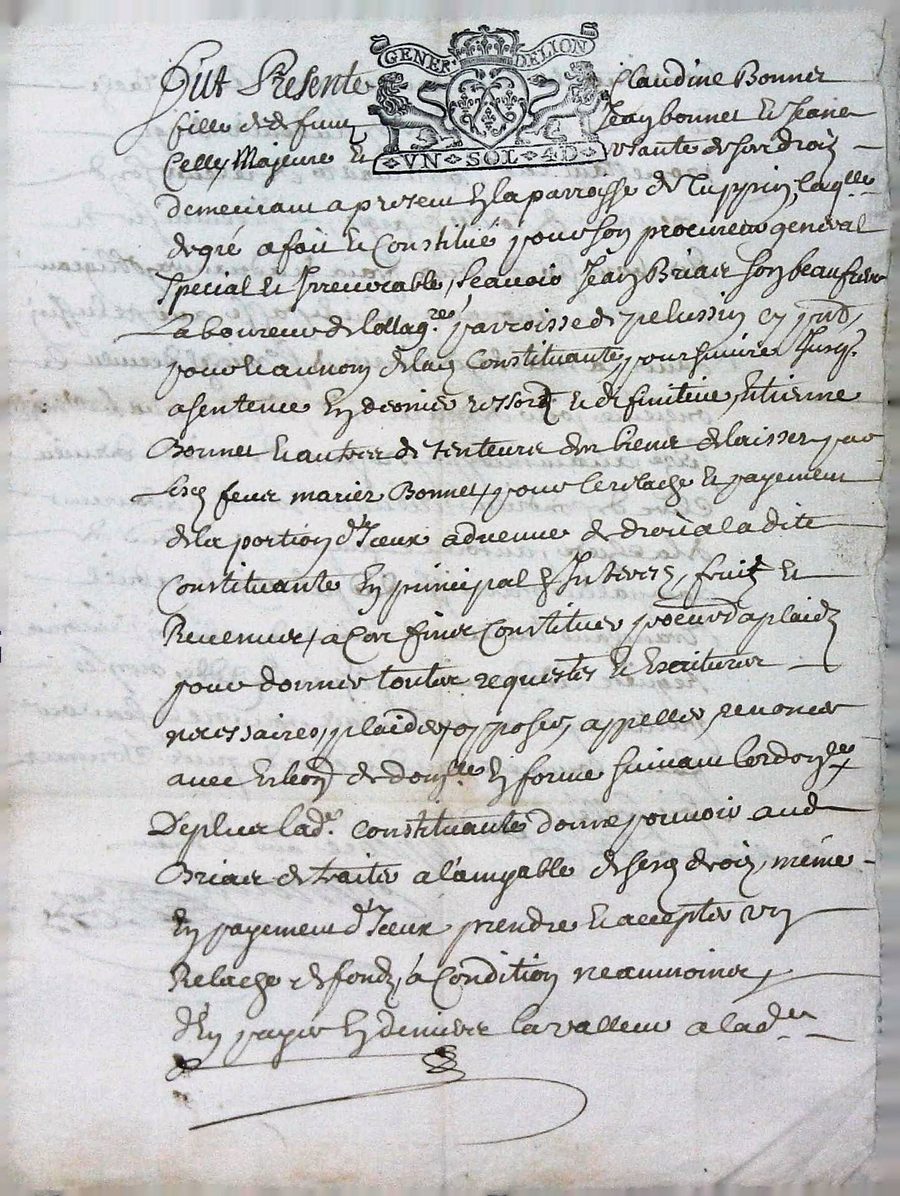 GENER. DELION
VN SOL 4D
Fut Presente Claudine Bonnet
fille de defunt Jean bonnet et Jeanne
Celle, Majeure et usante de ses droitz
demeurant a present en la parroisse de Tuppin, laqlle
de gré a fait et Constitué pour son procureur general
special et Irrevocable, scavoir Jean Briat son beaufrere
Laboureur de parroisse de pelussin
pour et au nom de lad Constituante poursuivre Jusq.
a sentence en dernier ressort et definitive, Etienne
Bonnet et autres detenteurs des biens delaissez par
lesd feus mariez Bonnet, pour le relache et payement
de la portion d'Iceux advenue de droit a la dite
Constituante En principal & Interetz, fruitz et
Revenus, a Ces fins Constituer procureur a plaidz
pour donner toutes requestes et Escritures
necessaires, plaider, opposer, appeller, renoncer
avec Election de domlle En forme suivant lordonce
De plus lade. constituante donne pouvoir aud
Briat de traiter a l'amyable de sesd droitz, même
En payement d'Iceux prendre et accepter un
Relache de fondz, a Condition neanmoins
d'En payer En deniers la valleur a lade